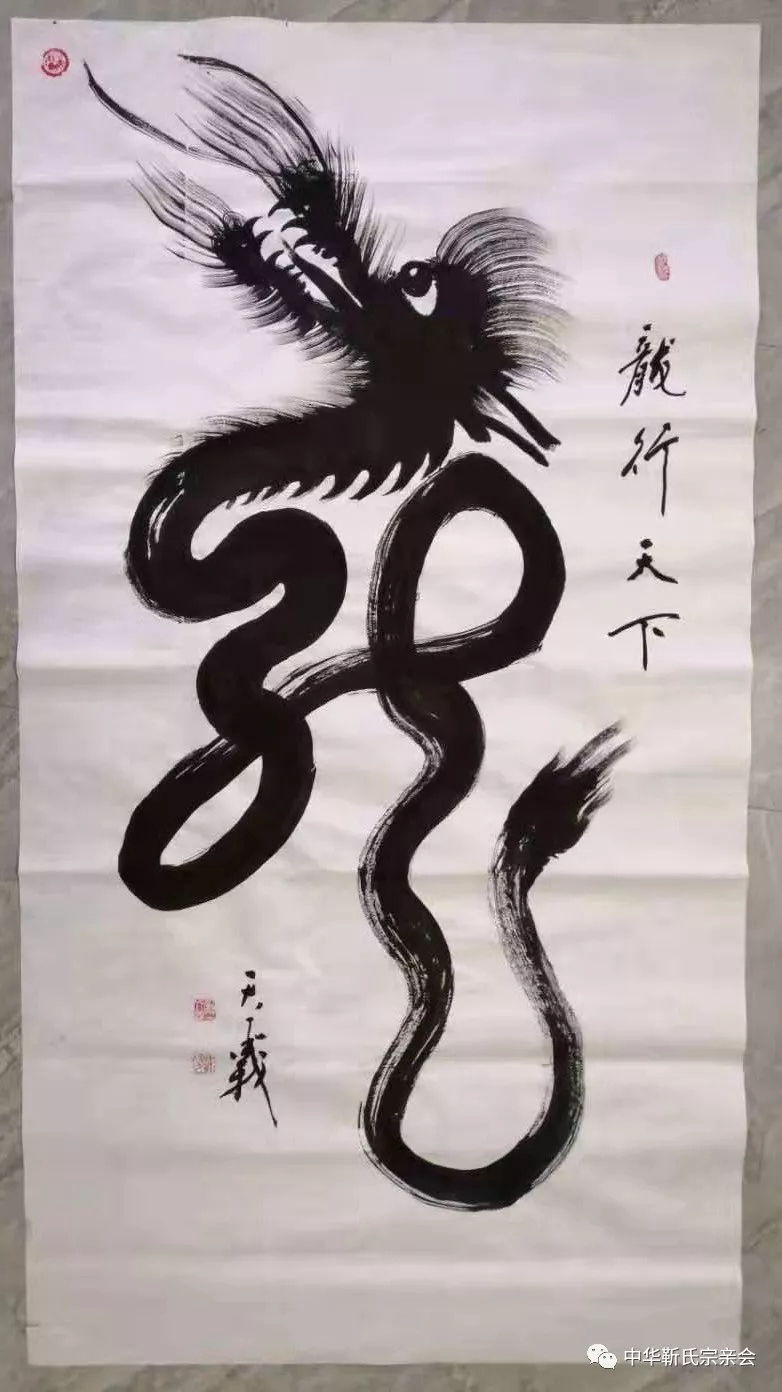 龍行天下
天義
中华靳氏宗亲会